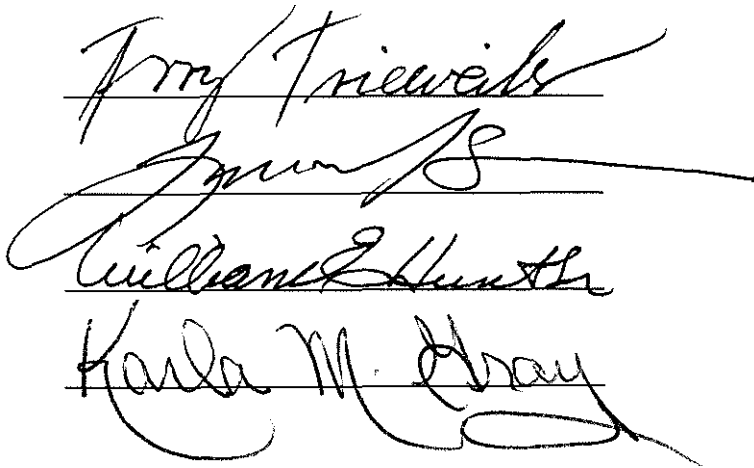 Terry Trieweiler
William E Hunter
Karla M. Gray